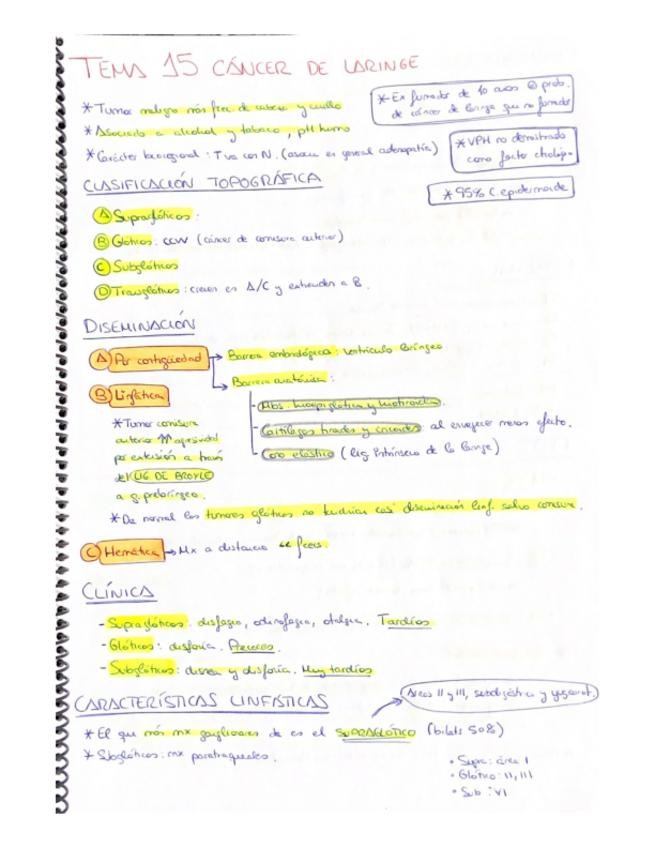 TEMA 15 CÁNCER DE LARINGE
* Tumor maligno más frec. de cabeza y cuello
* Asociado a alcohol y tabaco, pH humo
* Carácter locorregional: T va con N. (asocia en general adenopatía)
* Ex fumador de 10 años prob.
de cáncer de laringe que no fumador
* VPH no demostrado
como factor etiológ.
* 95% C. epidermoide
CLASIFICACIÓN TOPOGRÁFICA
A Supraglóticos:
B Glóticos: CCW (cáncer de comisura anterior)
C Subglóticos
D Transglóticos: crecen en A/C y extienden a B.
DISEMINACIÓN
A Por contigüedad → Barrera embriológica: Ventrículo laríngeo
→ Barrera anatómica:
B Linfática
- Mbs. tiroepiglótica y tirohioidea.
- Cartílagos tiroides y cricoides: al envejecer menos efecto.
- Cono elástico (lig. intrínseco de la laringe)
* Tumor comisura
anterior ↑↑ agresividad
por extensión a través
del LIG DE BROYLE
a g. prelaríngeo.
* De normal los tumores glóticos no tendrían casi diseminación linf. salvo comisura.
C Hemática → Mx a distancia frecs.
CLÍNICA
- Supraglóticos: disfagia, odinofagia, otalgia. Tardíos
- Glóticos: disfonía. Precoces.
- Subglóticos: disnea y disfonía. Muy tardíos
CARACTERÍSTICAS LINFÁTICAS
Áreas II y III, subdigástrica y yugocarot.
* El que más mx ganglionares da es el SUPRAGLÓTICO (bilats 50%)
* Subglóticos: mx paratraqueales.
• Supra: área I
• Glótico: II, III
• Sub: VI